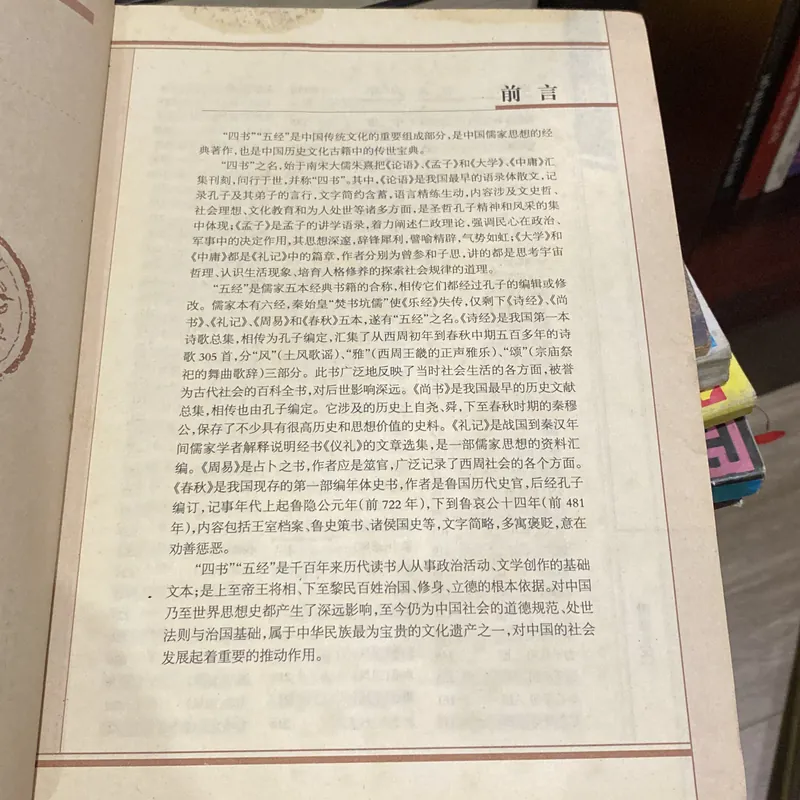 前言
“四书”“五经”是中国传统文化的重要组成部分，是中国儒家思想的经
典著作，也是中国历史文化古籍中的传世宝典。
“四书”之名，始于南宋大儒朱熹把《论语》、《孟子》和《大学》、《中庸》汇
集刊刻，问行于世，并称“四书”。其中，《论语》是我国最早的语录体散文，记
录孔子及其弟子的言行，文字简约含蓄，语言精练生动，内容涉及文史哲、
社会理想、文化教育和为人处世等诸多方面，是圣哲孔子精神和风采的集
中体现；《孟子》是孟子的讲学语录，着力阐述仁政理论，强调民心在政治、
军事中的决定作用，其思想深邃，辞锋犀利，譬喻精辟，气势如虹；《大学》和
《中庸》都是《礼记》中的篇章，作者分别为曾参和子思，讲的都是思考宇宙
哲理、认识生活现象、培育人格修养的探索社会规律的道理。
“五经”是儒家五本经典书籍的合称，相传它们都经过孔子的编辑或修
改。儒家本有六经，秦始皇“焚书坑儒”使《乐经》失传，仅剩下《诗经》、《尚
书》、《礼记》、《周易》和《春秋》五本，遂有“五经”之名。《诗经》是我国第一本
诗歌总集，相传为孔子编定，汇集了从西周初年到春秋中期五百多年的诗
歌305首，分“风”（土风歌谣）、“雅”（西周王畿的正声雅乐）、“颂”（宗庙祭
祀的舞曲歌辞）三部分。此书广泛地反映了当时社会生活的各方面，被誉
为古代社会的百科全书，对后世影响深远。《尚书》是我国最早的历史文献
总集，相传也由孔子编定。它涉及的历史上自尧、舜，下至春秋时期的秦穆
公，保存了不少具有很高历史和思想价值的史料。《礼记》是战国到秦汉年
间儒家学者解释说明经书《仪礼》的文章选集，是一部儒家思想的资料汇
编。《周易》是占卜之书，作者应是筮官，广泛记录了西周社会的各个方面。
《春秋》是我国现存的第一部编年体史书，作者是鲁国历代史官，后经孔子
编订，记事年代上起鲁隐公元年（前722年），下到鲁哀公十四年（前481
年），内容包括王室档案、鲁史策书、诸侯国史等，文字简略，多寓褒贬，意在
劝善惩恶。
“四书”“五经”是千百年来历代读书人从事政治活动、文学创作的基础
文本；是上至帝王将相、下至黎民百姓治国、修身、立德的根本依据。对中国
乃至世界思想史都产生了深远影响，至今仍为中国社会的道德规范、处世
法则与治国基础，属于中华民族最为宝贵的文化遗产之一，对中国的社会
发展起着重要的推动作用。